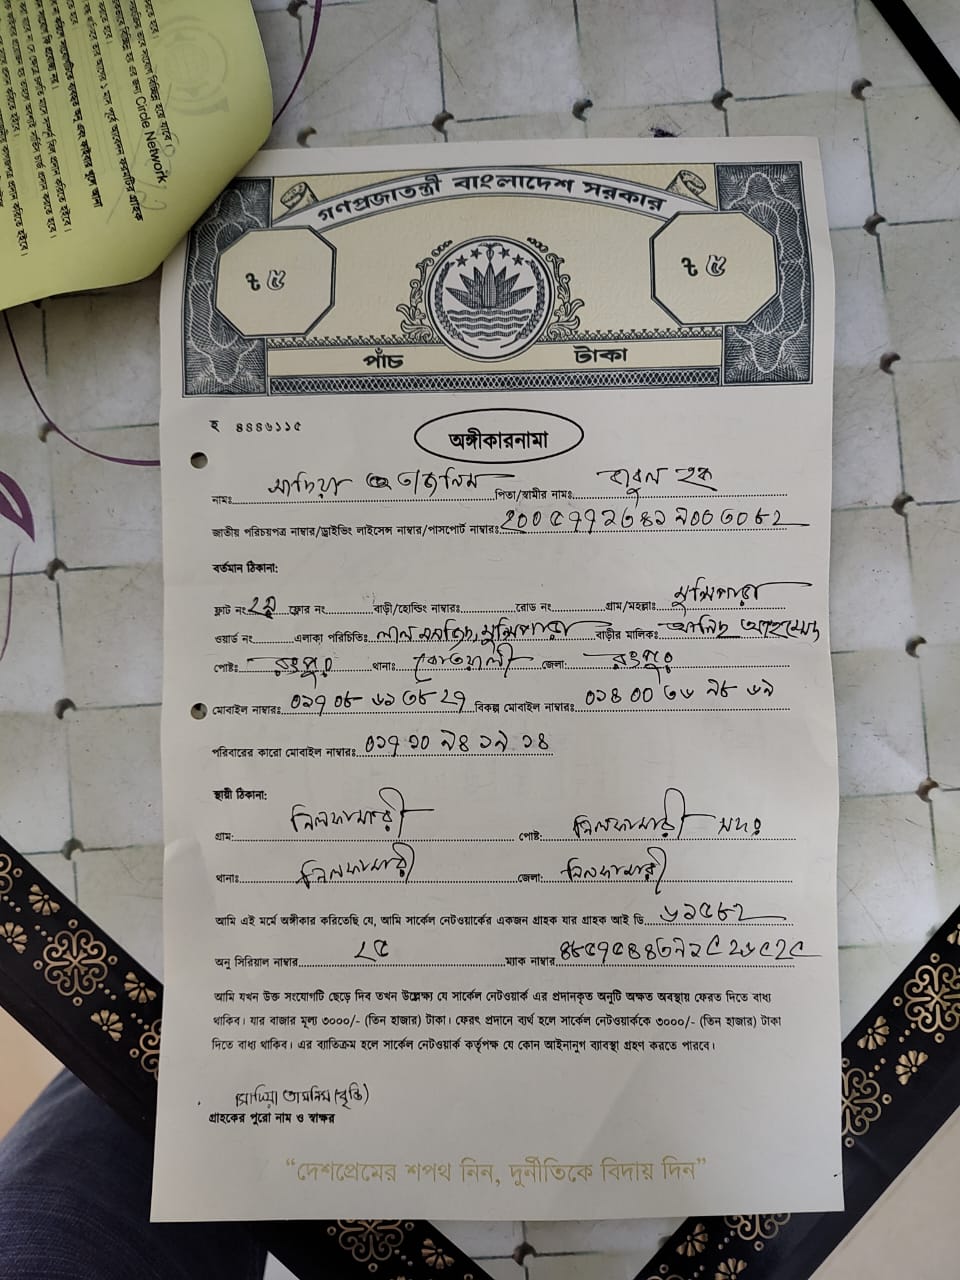 গণপ্রজাতন্ত্রী বাংলাদেশ সরকার
৳ ৫ ৳ ৫
পাঁচ টাকা
হ ৪৪৪৬১১৫
অঙ্গীকারনামা
নামঃ সাদিয়া তাজনিম পিতা/স্বামীর নামঃ বাবুল হক
জাতীয় পরিচয়পত্র নাম্বার/ড্রাইভিং লাইসেন্স নাম্বার/পাসপোর্ট নাম্বারঃ
বর্তমান ঠিকানা:
ফ্লাট নং ফ্লোর নং বাড়ী/হোল্ডিং নাম্বারঃ রোড নং গ্রাম/মহল্লাঃ মুন্সিপাড়া
ওয়ার্ড নং এলাকা পরিচিতিঃ লাল মসজিদ, মুন্সিপাড়া বাড়ীর মালিকঃ আনিছ আহমেদ
পোষ্টঃ রংপুর থানাঃ কোতয়ালী জেলা: রংপুর
মোবাইল নাম্বারঃ ০১৭০৮ ৬১৩৮২৭ বিকল্প মোবাইল নাম্বারঃ ০১৪০০৩৬ ৯৮ ৬৯
পরিবারের কারো মোবাইল নাম্বারঃ ০১৭১০ ৯৪১৯১৪
স্থায়ী ঠিকানা:
গ্রাম: নিলফামারী পোষ্ট: নিলফামারী সদর
থানাঃ নিলফামারী জেলা: নিলফামারী
আমি এই মর্মে অঙ্গীকার করিতেছি যে, আমি সার্কেল নেটওয়ার্কের একজন গ্রাহক যার গ্রাহক আই ডি ৬১৫৮২
অনু সিরিয়াল নাম্বার ২৫ ম্যাক নাম্বার
আমি যখন উক্ত সংযোগটি ছেড়ে দিব তখন উল্লেক্ষ্য যে সার্কেল নেটওয়ার্ক এর প্রদানকৃত অনুটি অক্ষত অবস্থায় ফেরত দিতে বাধ্য
থাকিব। যার বাজার মূল্য ৩০০০/- (তিন হাজার) টাকা। ফেরৎ প্রদানে ব্যর্থ হলে সার্কেল নেটওয়ার্ককে ৩০০০/- (তিন হাজার) টাকা
দিতে বাধ্য থাকিব। এর ব্যতিক্রম হলে সার্কেল নেটওয়ার্ক কর্তৃপক্ষ যে কোন আইনানুগ ব্যাবস্থা গ্রহণ করতে পারবে।
সাদিয়া তাসনিম (বৃষ্টি)
গ্রাহকের পুরো নাম ও স্বাক্ষর
“দেশপ্রেমের শপথ নিন, দুর্নীতিকে বিদায় দিন”
Circle Network